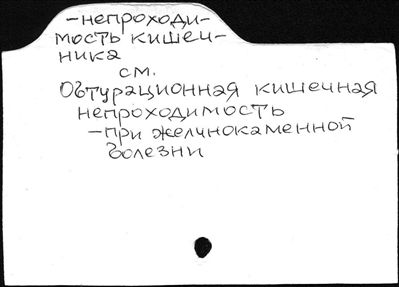 -непроходи-
мость кишеч-
ника
см.
Обтурационная кишечная
непроходимость
-при желчнокаменной
болезни